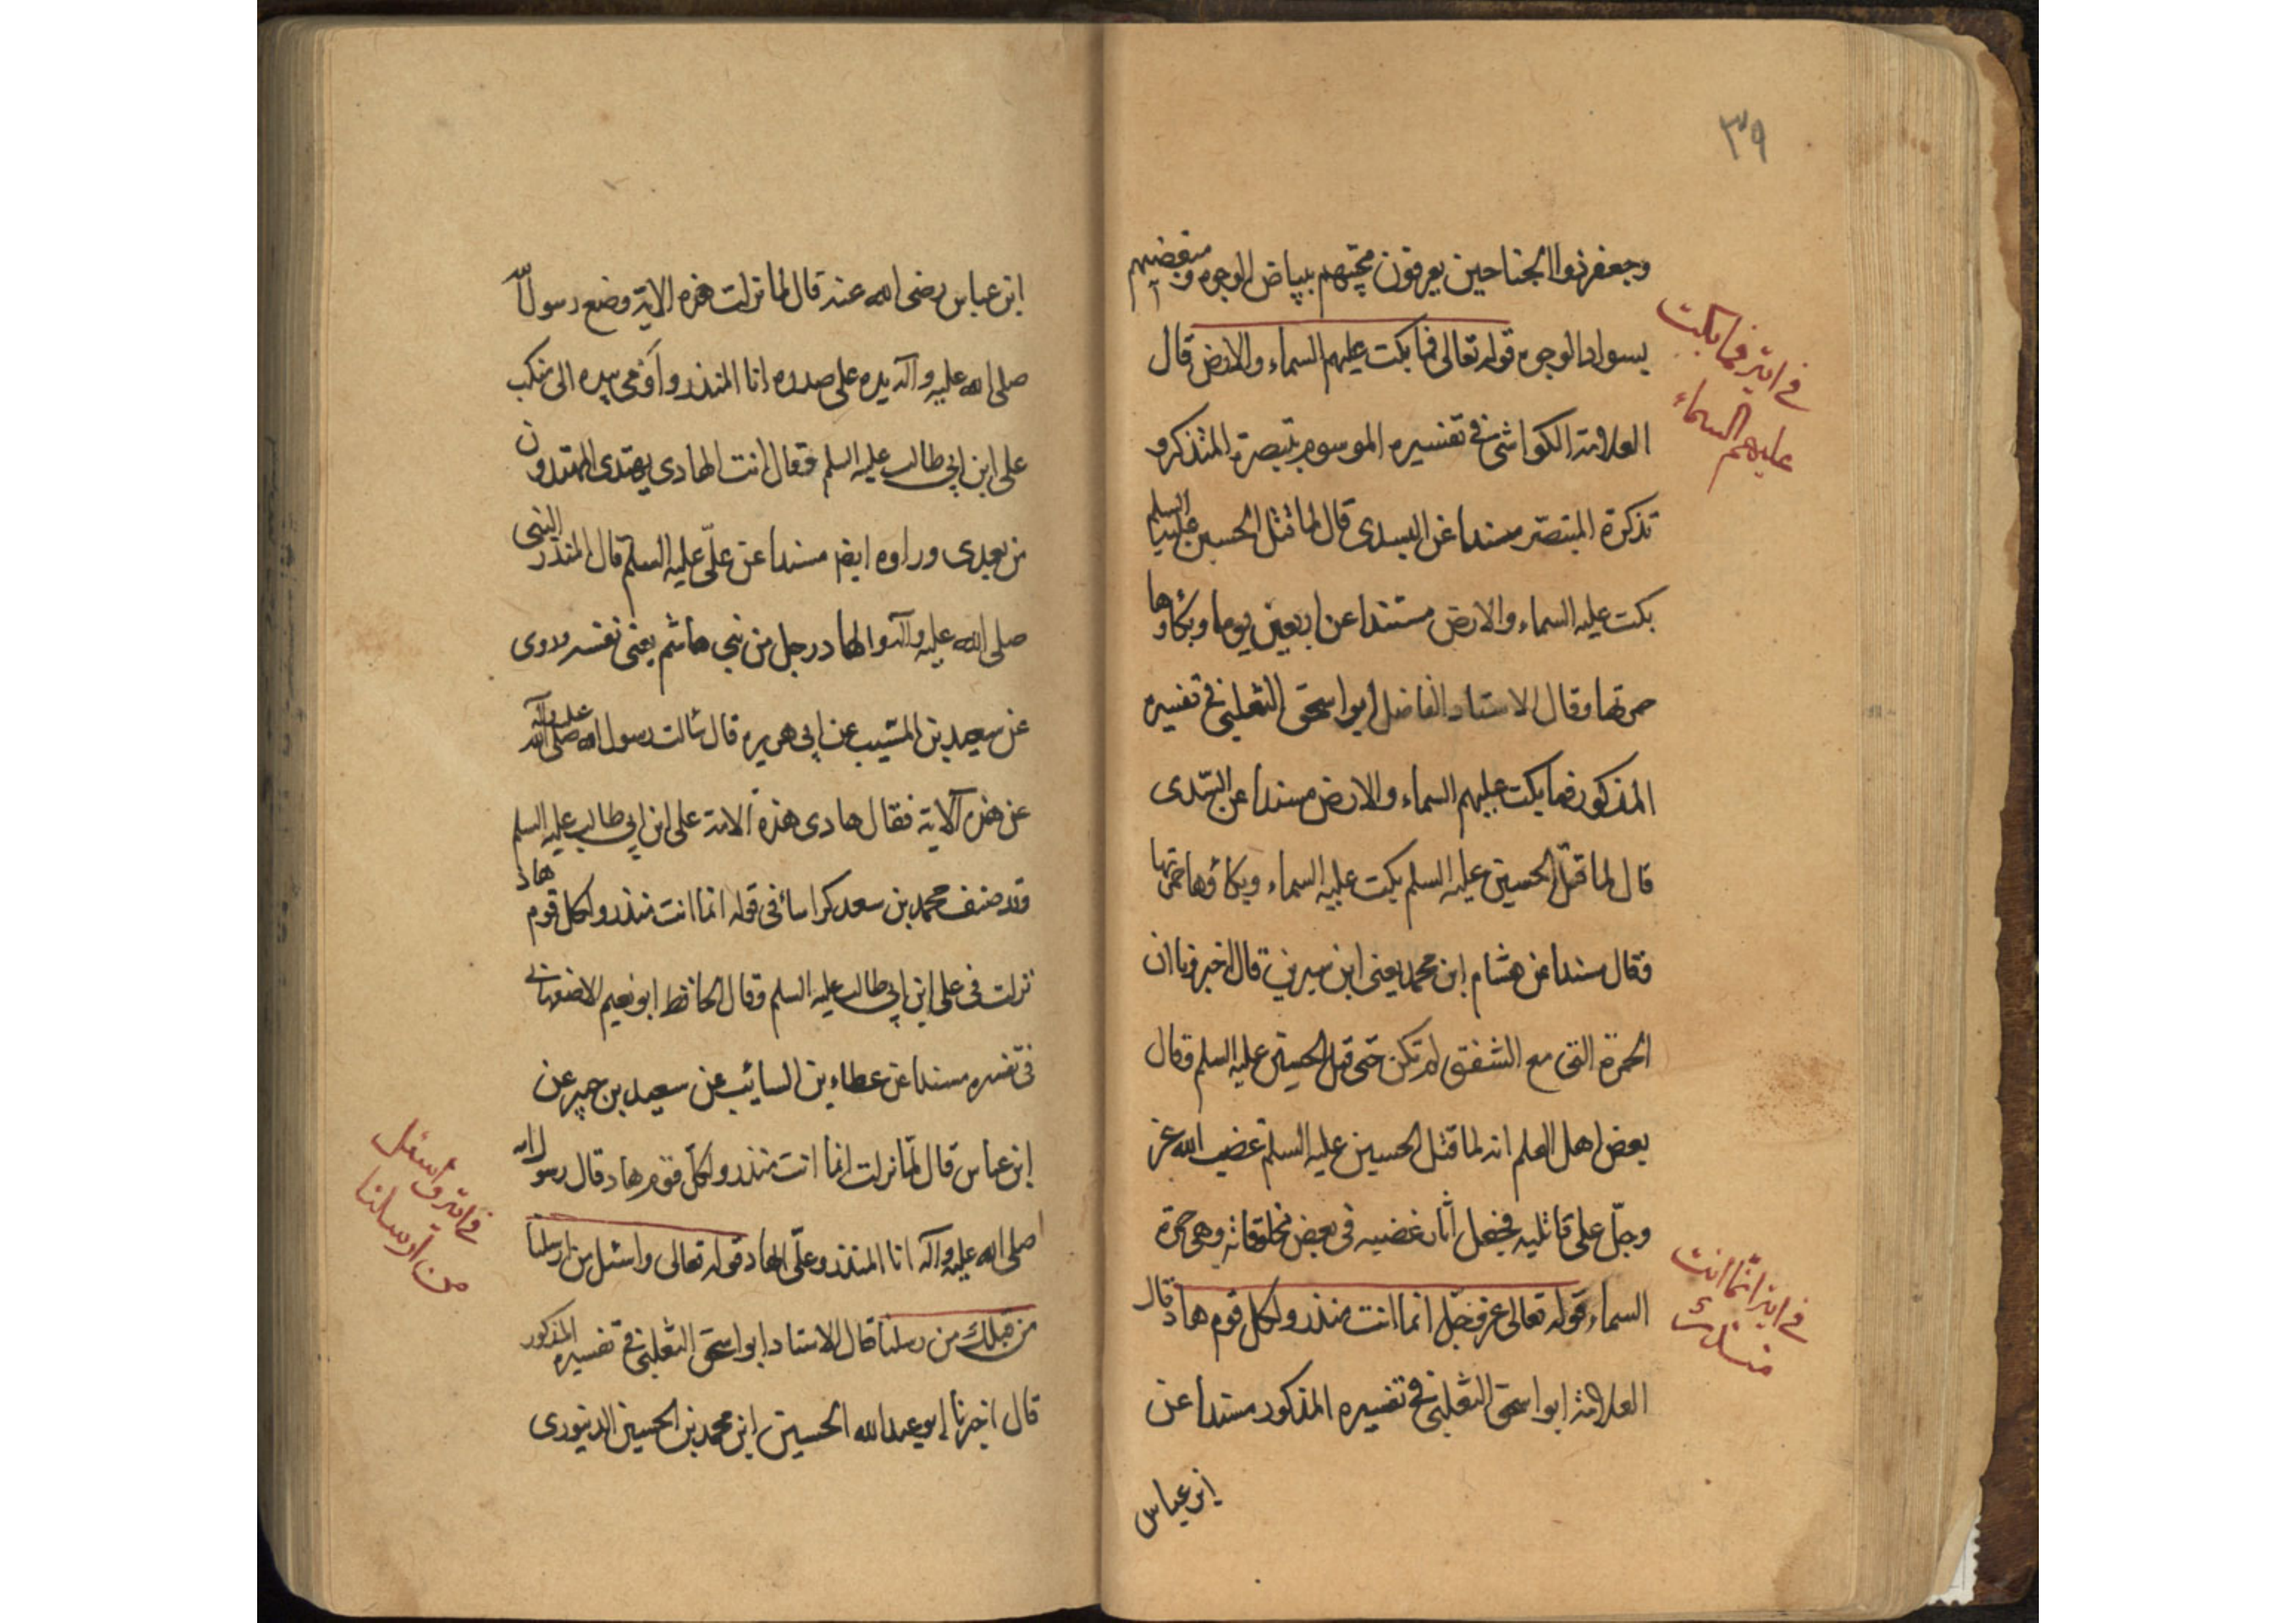 ٣٩
وجعفر ذوا الجناحين يعرفون محبتهم ببياض الوجوه ومبغضيهم
بسواد الوجوه قوله تعالى فما بكت عليهم السماء والارض قال
في اية فما بكت
عليهم السماء
العلامة الكواشي في تفسيره الموسوم بتبصرة المتذكر و
تذكرة المتبصر مسندا عن السدى قال لما قتل الحسين عليه السلم
بكت عليه السماء والارض مستندا عن اربعين يوما وبكاؤها
حمرتها وقال الاستاد الفاضل ابو اسحق الثعلبي في تفسيره
المذكور فما بكت عليهم السماء والارض مسندا عن السّدى
قال لما قتل الحسين عليه السلم بكت عليه السماء وبكاؤها حمرتها
فقال مسندا عن هشام ابن محمد يعنى ابن سيرين قال اخبرونا ان
الحمرة التى مع الشفق لم تكن حتى قتل الحسين عليه السلم وقال
بعض اهل العلم انه لما قتل الحسين عليه السلم غضب الله عز
وجلّ على قاتليه فجعل اثار غضبه فى بعض مخلوقاته وهى حمرة
السماء قوله تعالى عز وجل انما انت منذر ولكل قوم هاد قال
في اية انّما انت
منذر
العلامة ابو اسحق الثعلبي في تفسيره المذكور مسندا عن
ابن عباس
ابن عباس رضى الله عنه قال لما نزلت هذه الاية وضع رسول الله
صلى الله عليه وآله يده على صدره انا المنذر واومى بيده الى منكب
على ابن ابي طالب عليه السلم فقال انت الهادى يهتدى المهتدون
من بعدى ورواه ايضا مسندا عن علىّ عليه السلم قال المنذر النبى
صلى الله عليه وآله والهاد رجل من بنى هاشم يعنى نفسه وروى
عن سعيد بن المسّيب عن ابي هريره قال سالت رسول الله صلى الله عليه وآله
عن هذه الآية فقال هادى هذه الامة على ابن ابي طالب عليه السلم
وقد صنف محمد بن سعد كراسا فى قوله انما انت منذر ولكل قوم هاد
نزلت فى على ابن ابي طالب عليه السلم وقال الحافظ ابو نعيم الاصفهاني
فى تفسيره مسندا عن عطاء بن السائب عن سعيد بن جبير عن
ابن عباس قال لمّا نزلت انما انت منذر ولكل قوم هاد قال رسول الله
صلى الله عليه وآله انا المنذر وعلّى الهاد قوله تعالى واسئل من ارسلنا
في اية واسئل
من ارسلنا
من قبلك من رسلنا قال الاستاد ابو اسحق الثعلبي في تفسيره المذكور
قال اخبرنا ابو عبد الله الحسين ابن محمد بن الحسين الدينورى